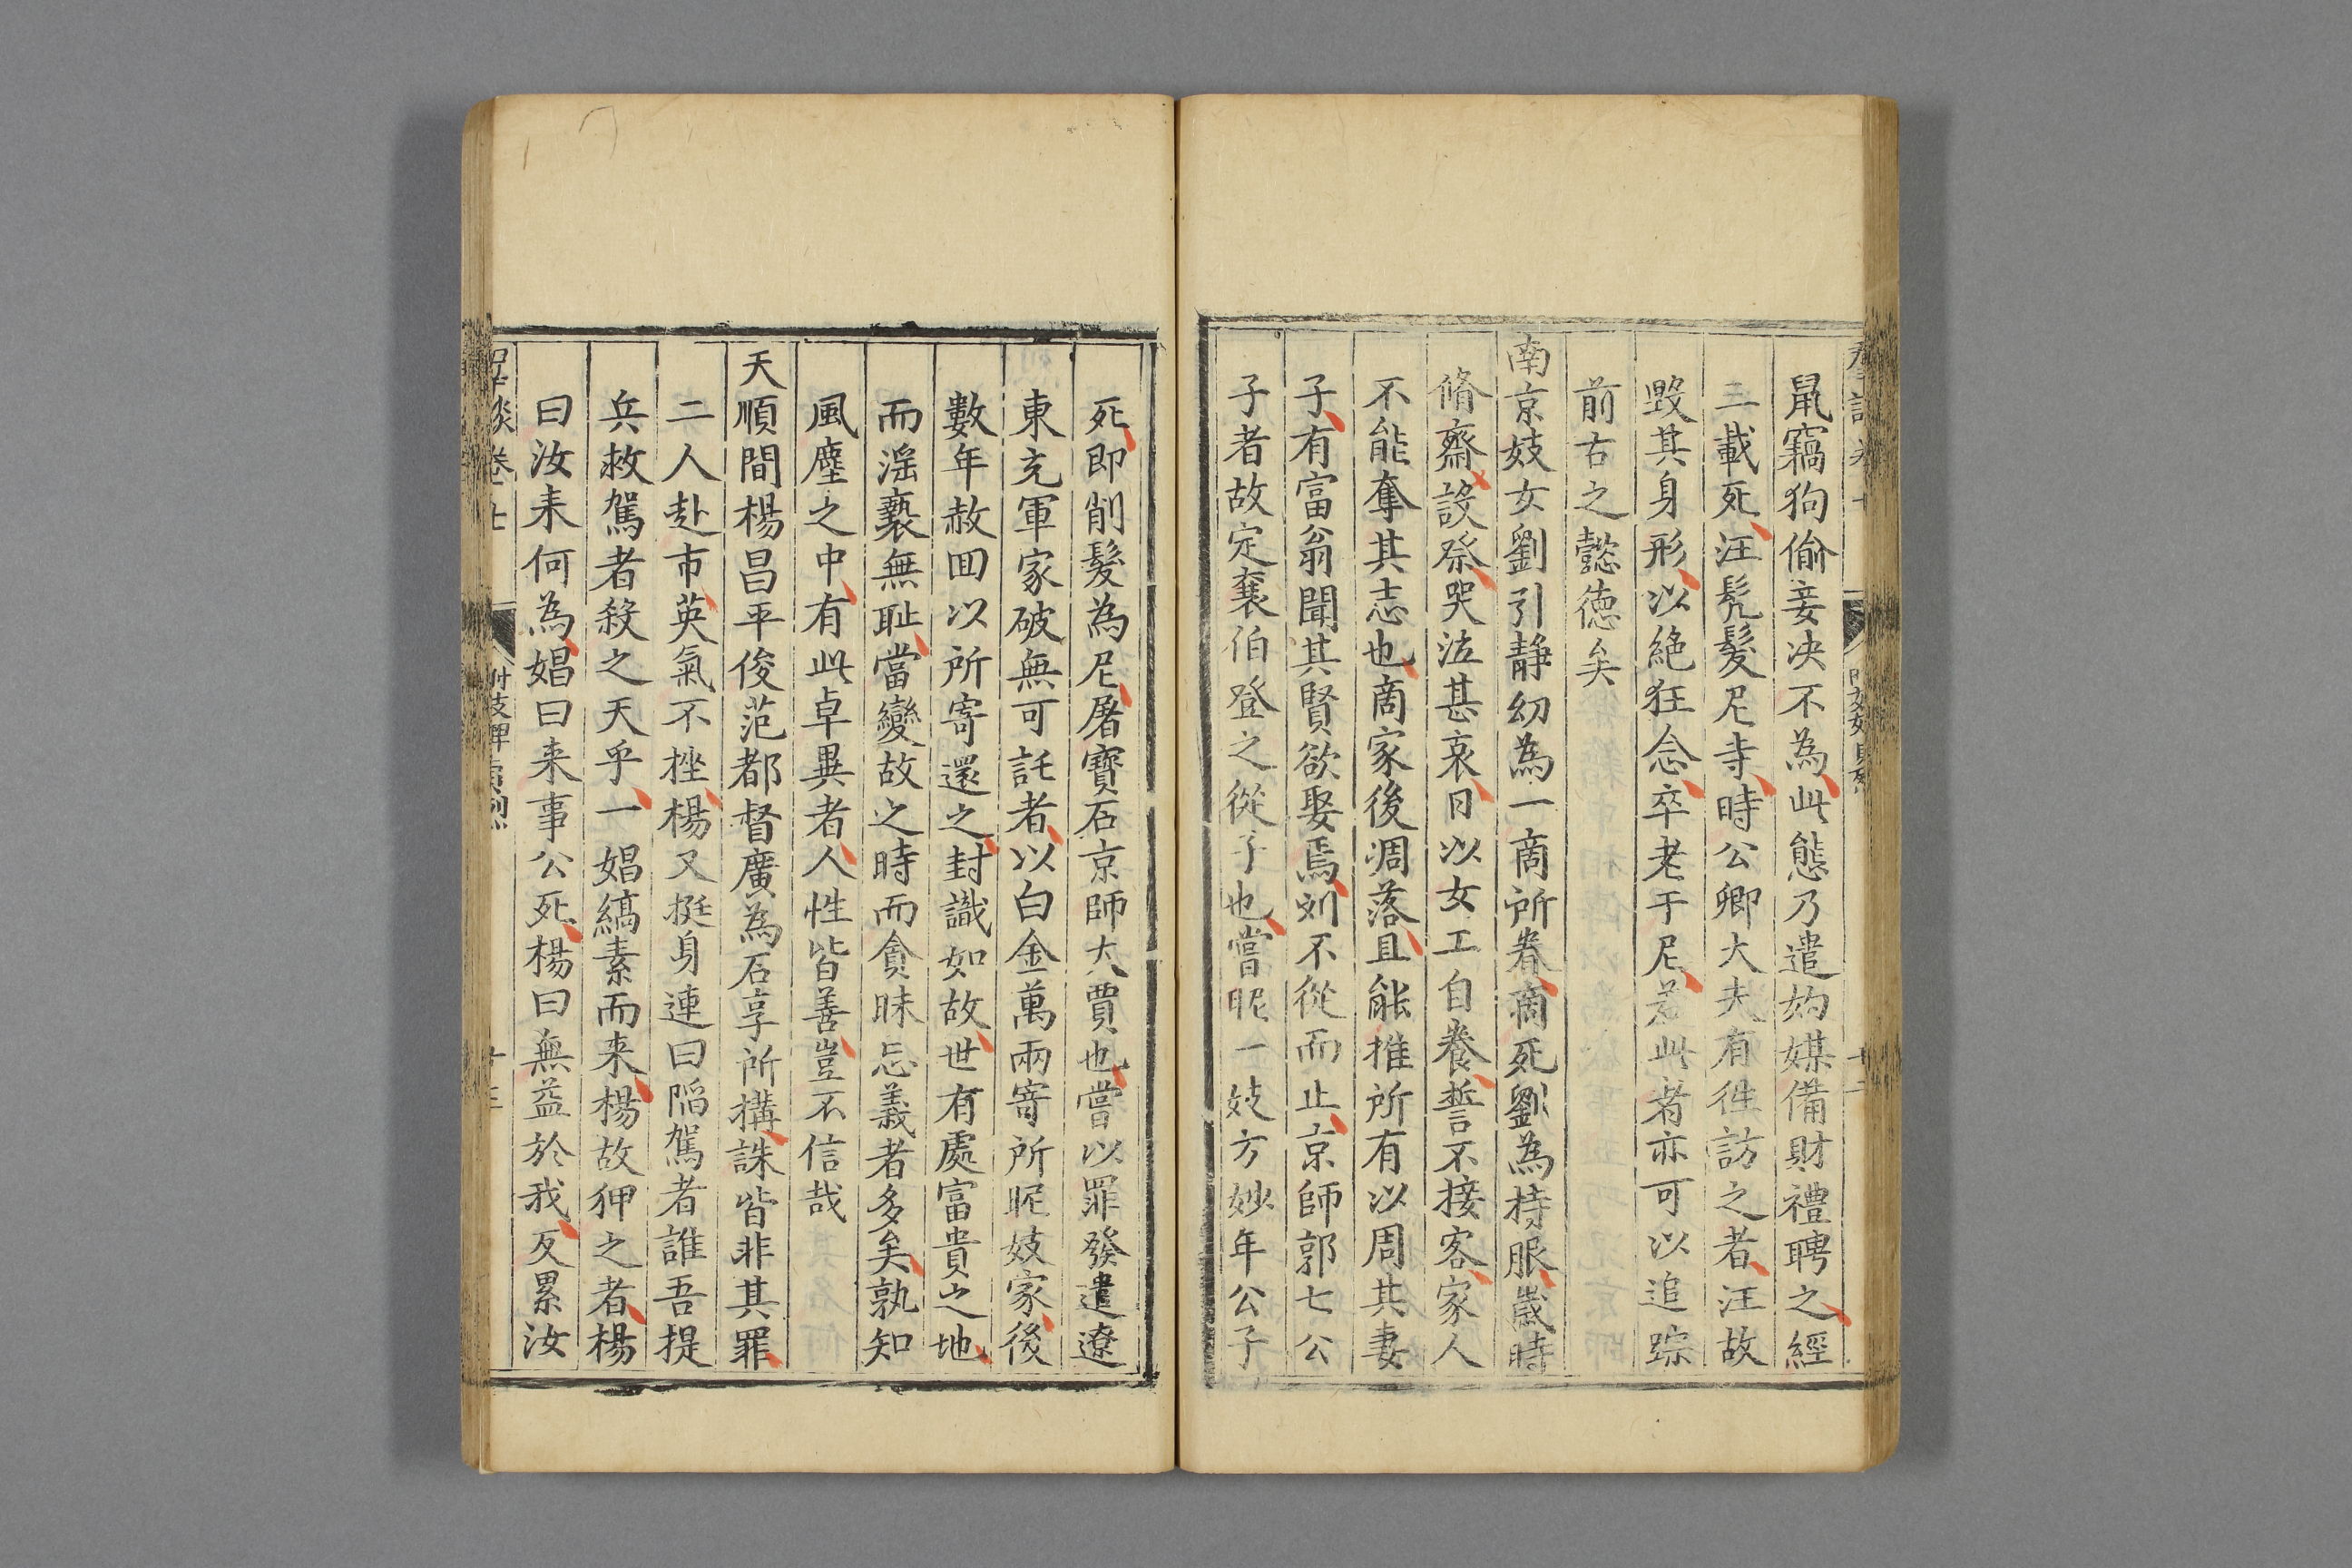 鼠竊狗偷妾决不為此態乃遣妁媒備財禮聘之經
三載死汪髠髮尼寺時公卿大夫有徃訪之者汪故
毀其身形以絕狂念卒老于尼若此者亦可以追踪
前古之懿德矣
南京妓女劉引靜幼為一商所眷商死劉為持服歲時
脩齋設祭哭泣甚哀日以女工自養誓不接客家人
不能奪其志也商家後凋落且能推所有以周其妻
子有富翁聞其賢欲娶焉刘不從而止京師郭七公
子者故定襄伯登之從子也嘗昵一妓方妙年公子
死即削髮為尼屠寶石京師大賈也嘗以罪發遣遼
東充軍家破無可託者以白金萬兩寄所昵妓家後
數年赦囬以所寄還之封識如故世有處富貴之地
而滛褻無耻當變故之時而貪昧忘義者多矣孰知
風塵之中有此卓異者人性皆善豈不信哉
天順間楊昌平俊范都督廣為石亨所搆誅皆非其罪
二人赴市英氣不挫楊又挺身連曰陷駕者誰吾提
兵救駕者殺之天乎一娼縞素而来楊故狎之者楊
曰汝来何為娼曰来事公死楊曰無益於我反累汝
卷十
十三